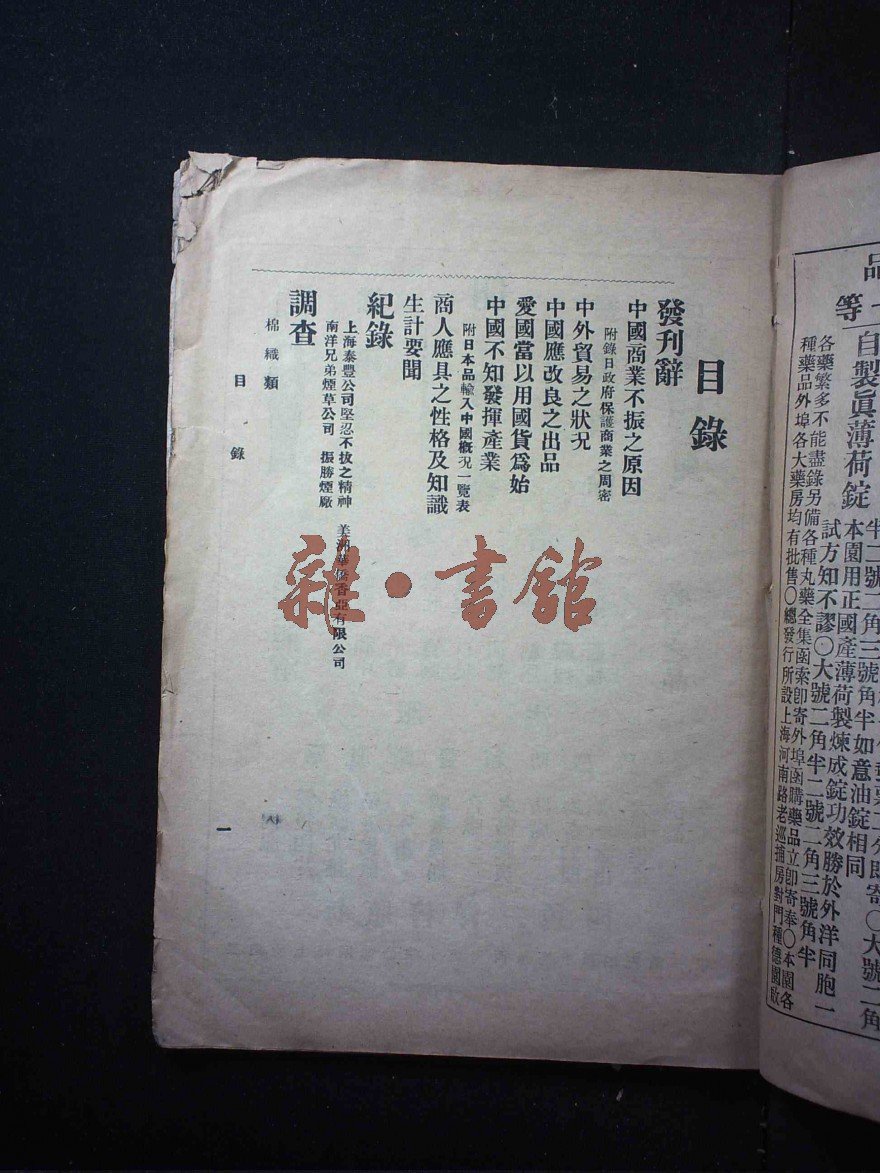 品
一等
自製眞薄荷錠
半二號二角三號角半如意油錠相同
本園用正國產薄荷製煉成錠功效勝於外洋同胞一
試方知不謬〇大號二角半二號二角三號角半
各藥繁多不能盡錄另備各種丸藥全集函索卽寄外埠函購藥品立卽寄奉〇本園各
種藥品外埠各大藥房均有批售〇總發行所設上海河南路老巡捕房對門種德園啟
目錄
發刊辭
中國商業不振之原因
附錄日政府保護商業之周密
中外貿易之狀況
中國應改良之出品
愛國當以用國貨爲始
中國不知發揮產業
附日本品輸入中國概況一覽表
商人應具之性格及知識
生計要聞
紀錄
上海泰豐公司堅忍不拔之精神 美洲華僑香亞有限公司
南洋兄弟煙草公司 振勝煙廠
調查
棉織類
目錄
一
雜·書館